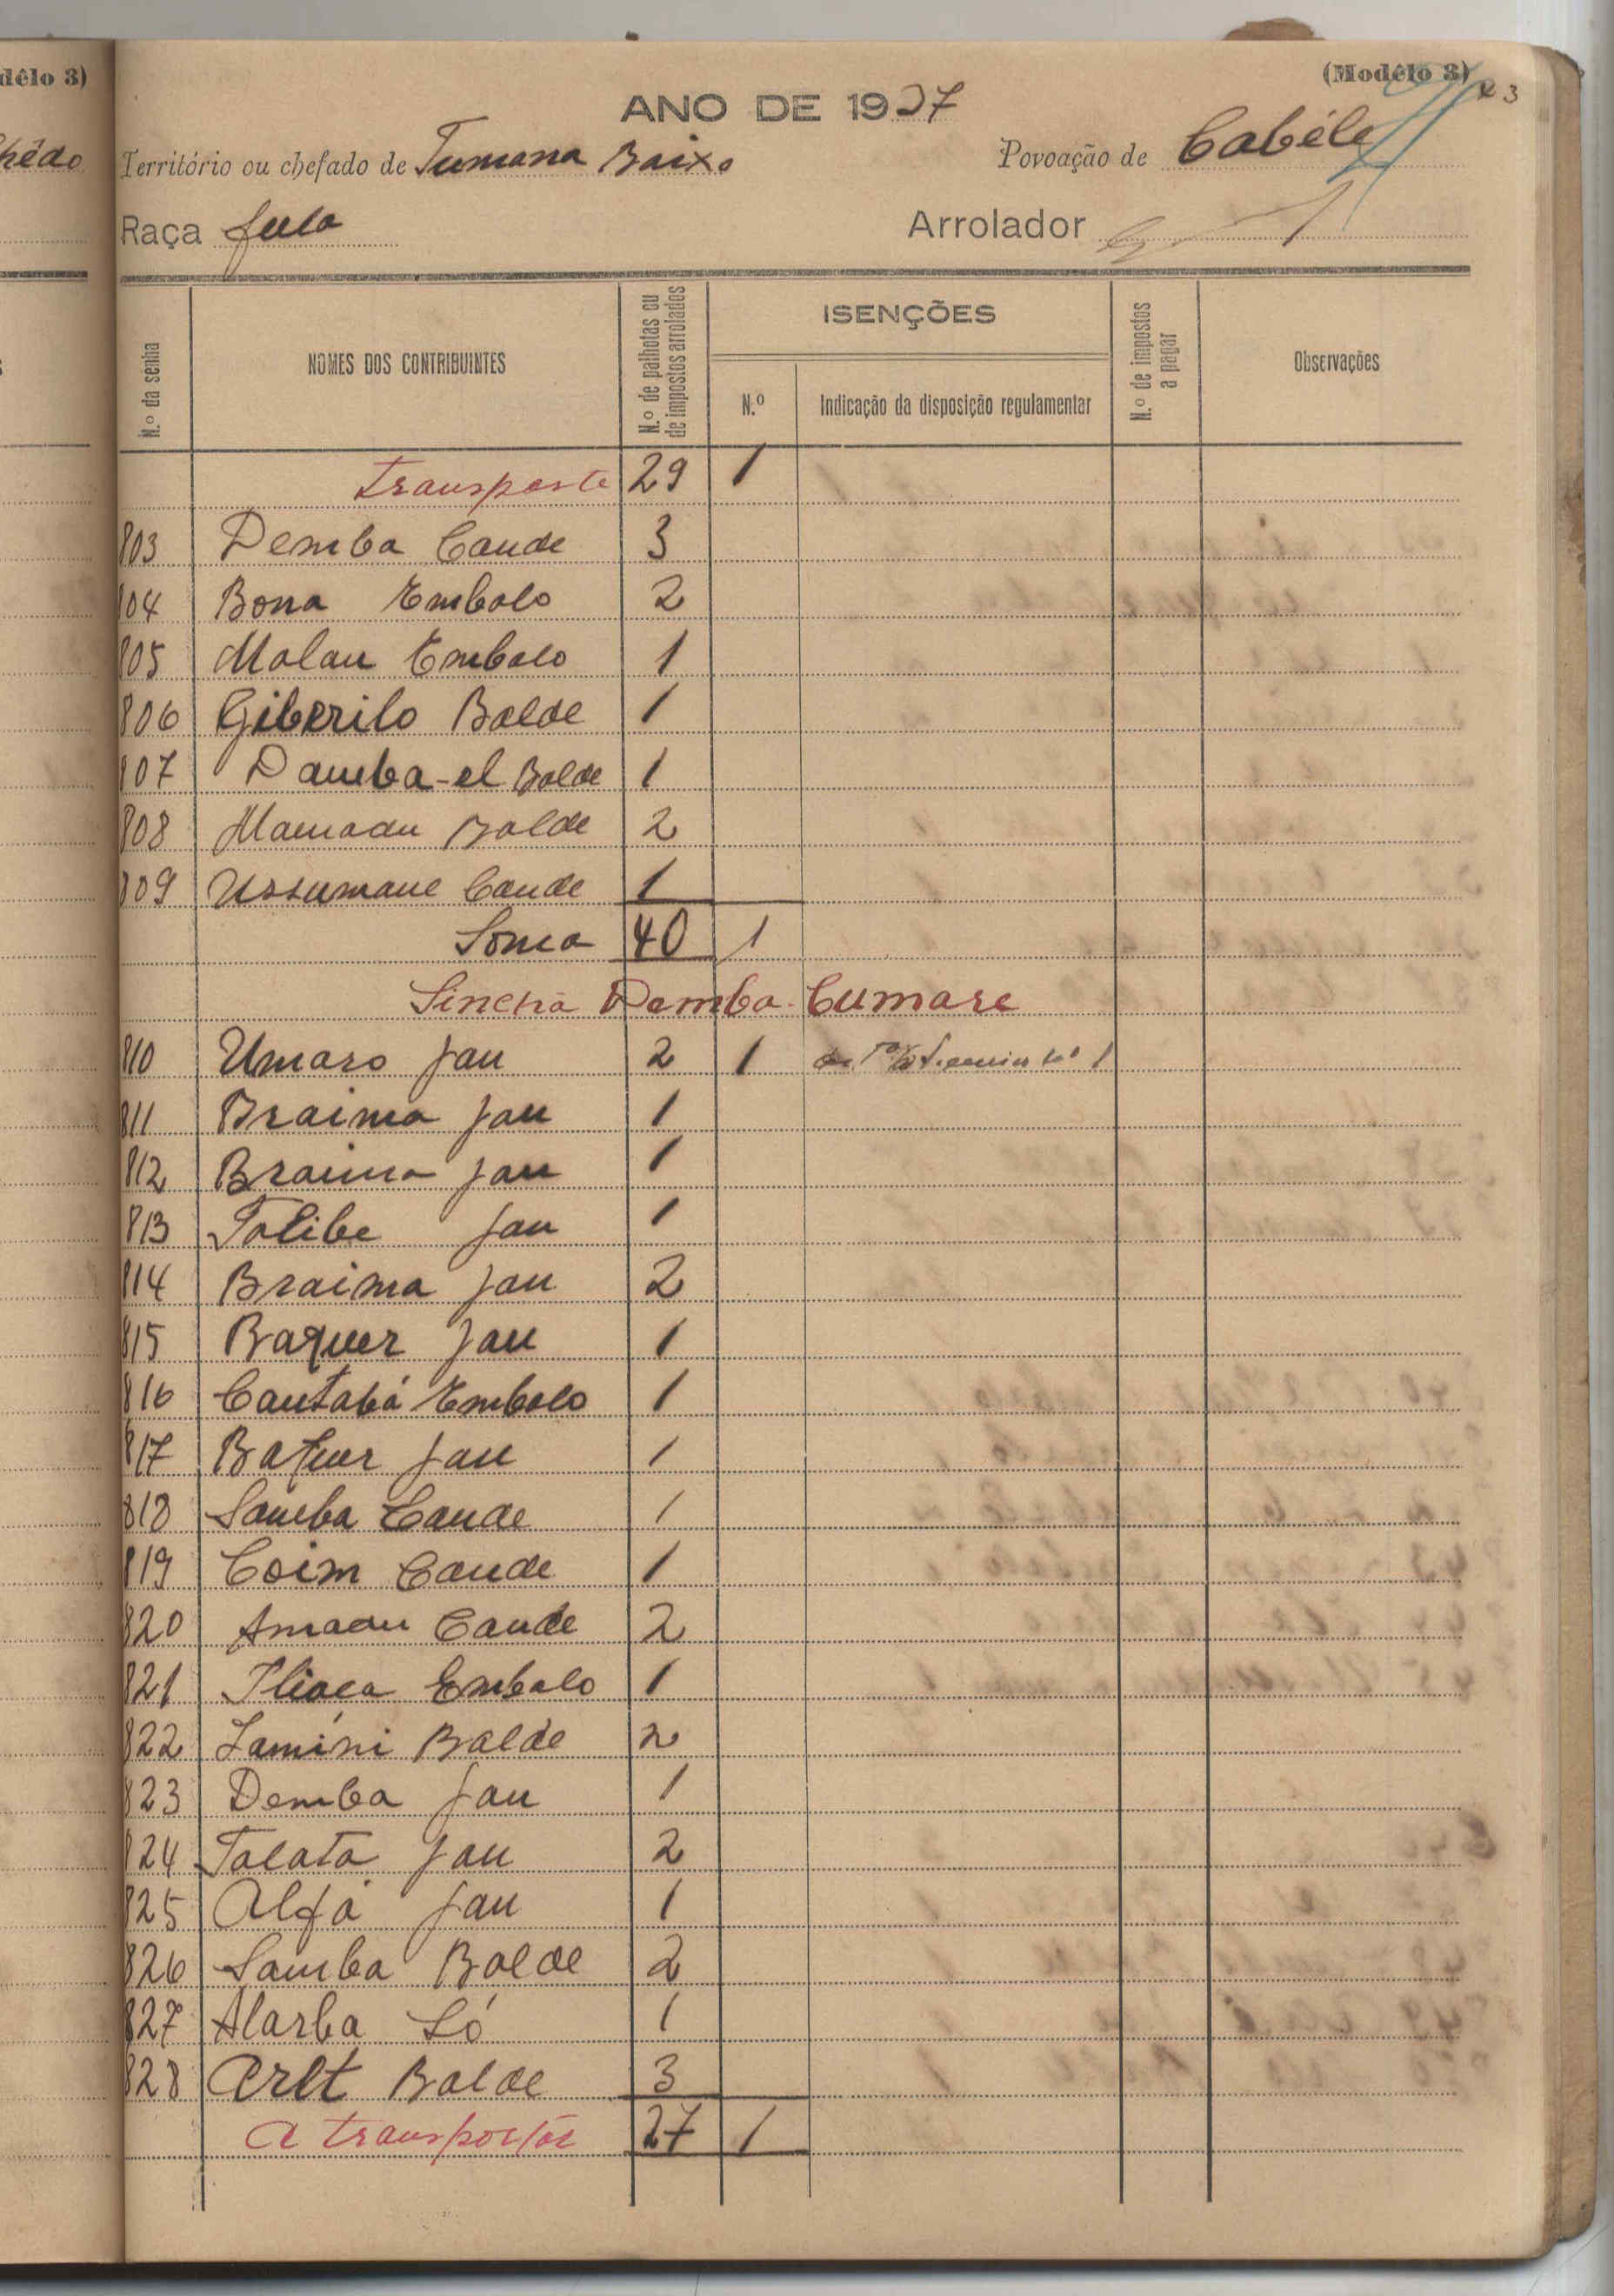 dêlo 3)
hêdo
(Modêlo 3)
ANO DE 1937
Território ou chefado de Tumana Baixo
Povoação de Cabéle
Raça fula
Arrolador
N.º da senha
NOMES DOS CONTRIBUINTES
N.º de palhotas ou de impostos arrolados
ISENÇÕES
N.º
Indicação da disposição regulamentar
N.º de impostos a pagar
Observações
transporte 29 1
803 Demba Cande 3
804 Bona Embalo 2
805 Malan Embalo 1
806 Giberilo Balde 1
807 Damba-el Balde 1
808 Mamadu Balde 2
809 Ussumane Cande 1
Soma 40 1
Sincha Demba Cumare
810 Umaro Jau 2 1 1
811 Braima Jau 1
812 Braima Jau 1
813 Talibe Jau 1
814 Braima Jau 2
815 Baquer Jau 1
816 Cantabá Embalo 1
817 Baquer Jau 1
818 Samba Cande 1
819 Coim Cande 1
820 Amadu Cande 2
821 Embalo 1
822 Lamini Balde 2
823 Demba Jau 1
824 Talata Jau 2
825 Alfa Jau 1
826 Samba Balde 2
827 Alarba Só 1
828 Balde 3
A transportar 27 1